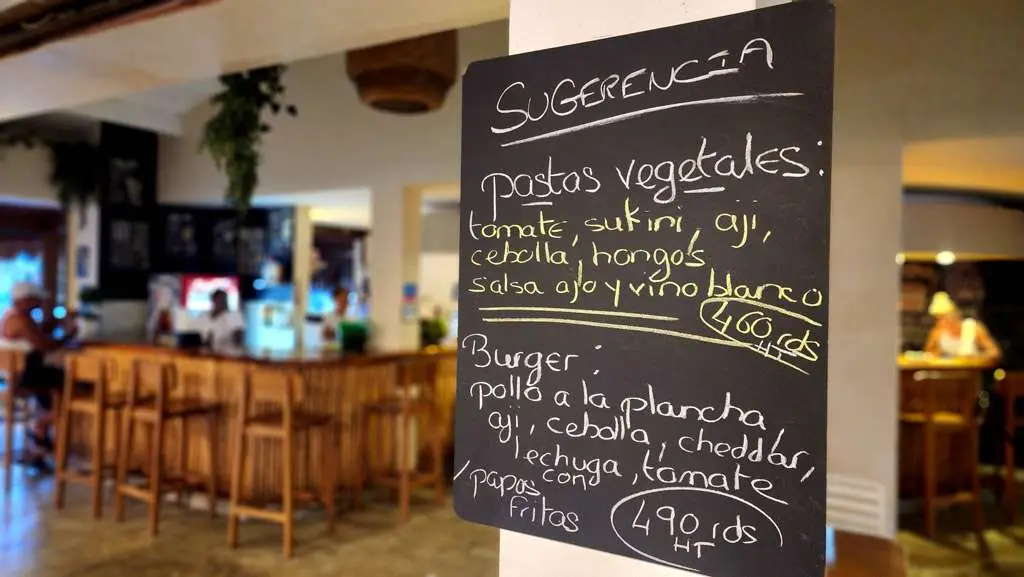 SUGERENCIA
pastas vegetales:
tomate, sukini, aji,
cebolla, hongos
salsa ajo y vino blanco
460 rds
HT
Burger:
pollo a la plancha,
aji, cebolla, cheddar,
lechuga, tomate
/papas cong
fritas
490 rds
HT